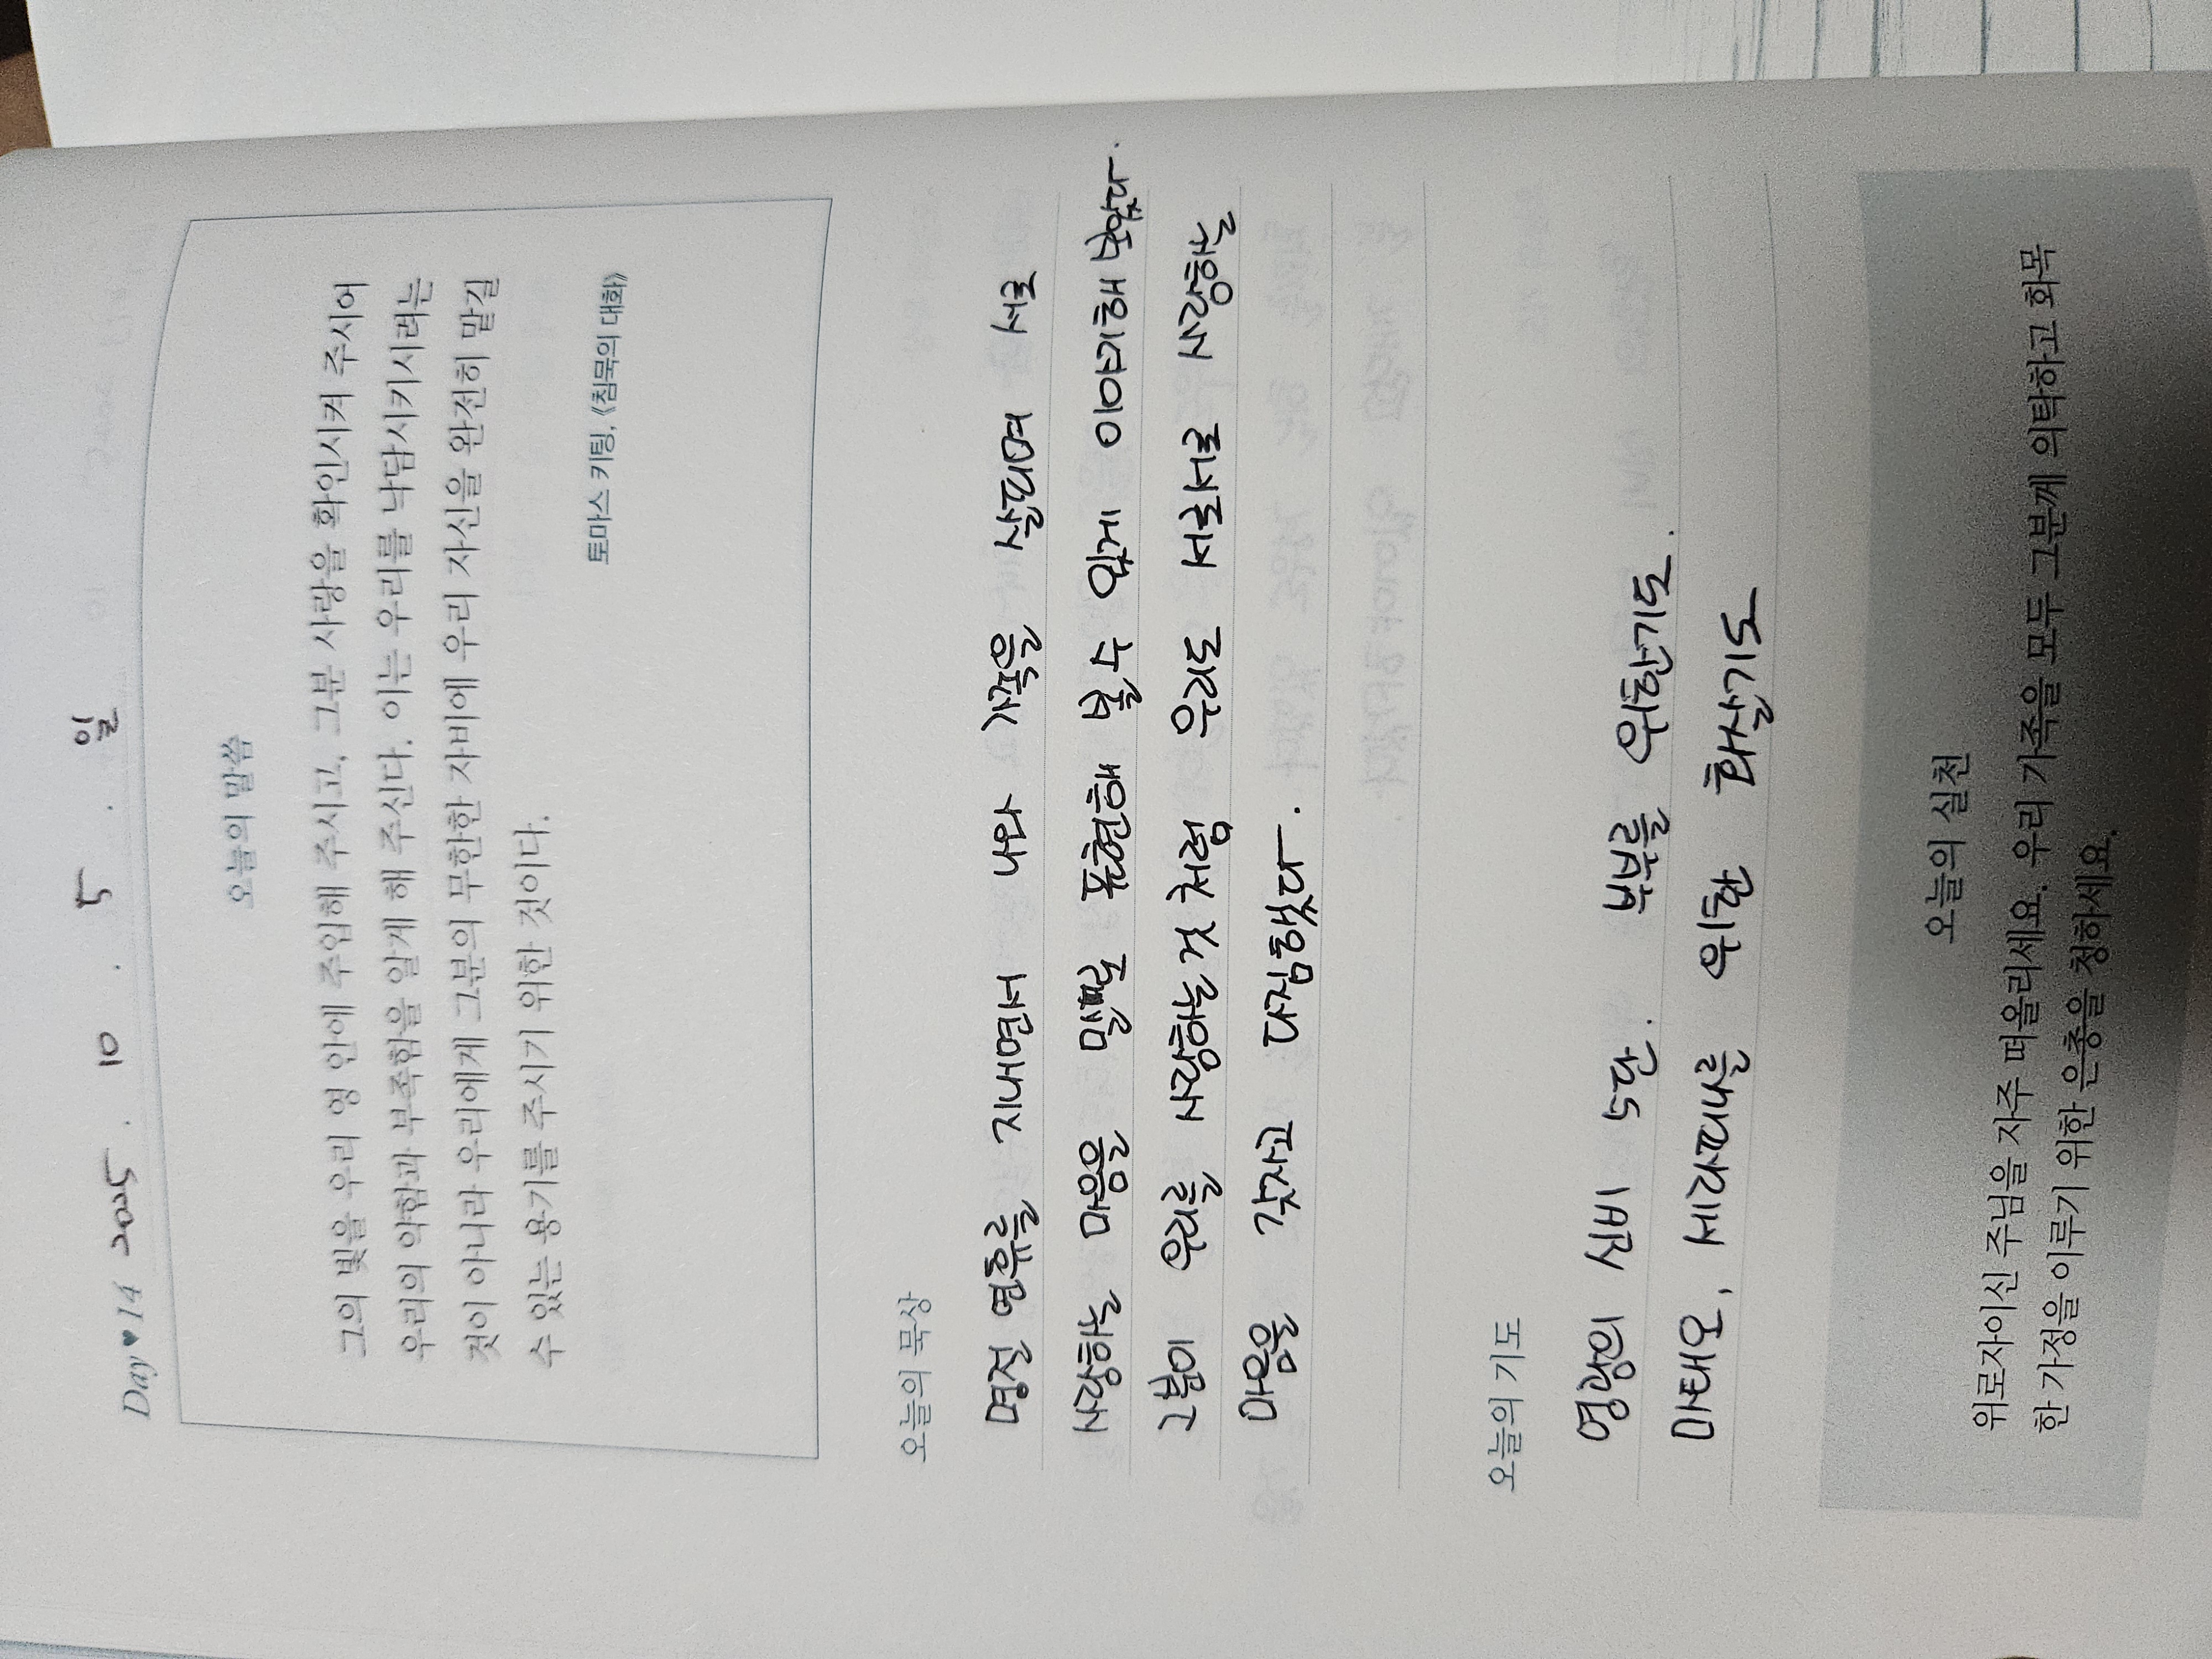 Day ♥ 14 2025 . 10 . 5 . 일
오늘의 말씀
그의 빛을 우리 영 안에 주입해 주시고, 그분 사랑을 확인시켜 주시어
우리의 약함과 부족함을 알게 해 주신다. 이는 우리를 낙담시키시려는
것이 아니라 우리에게 그분의 무한한 자비에 우리 자신을 완전히 맡길
수 있는 용기를 주시기 위한 것이다.
토마스 키팅, 《침묵의 대화》
오늘의 묵상
명절 연휴를 지내면서 나와 가족을 살펴며 서로
사랑하는 마음을 말로 표현해 볼 수 있게 이야기해 보았다.
그렇다 우리를 사랑하는 것처럼 우리도 서로서로 사랑해를
마음을 갖자고 다짐했다.
오늘의 기도
영광의 신비 5단. 부부를 위한기도.
마태오, 세라피나를 위한 화살기도
오늘의 실천
위로자이신 주님을 자주 떠올리세요. 우리 가족을 모두 그분께 의탁하고 화목
한 가정을 이루기 위한 은총을 청하세요.